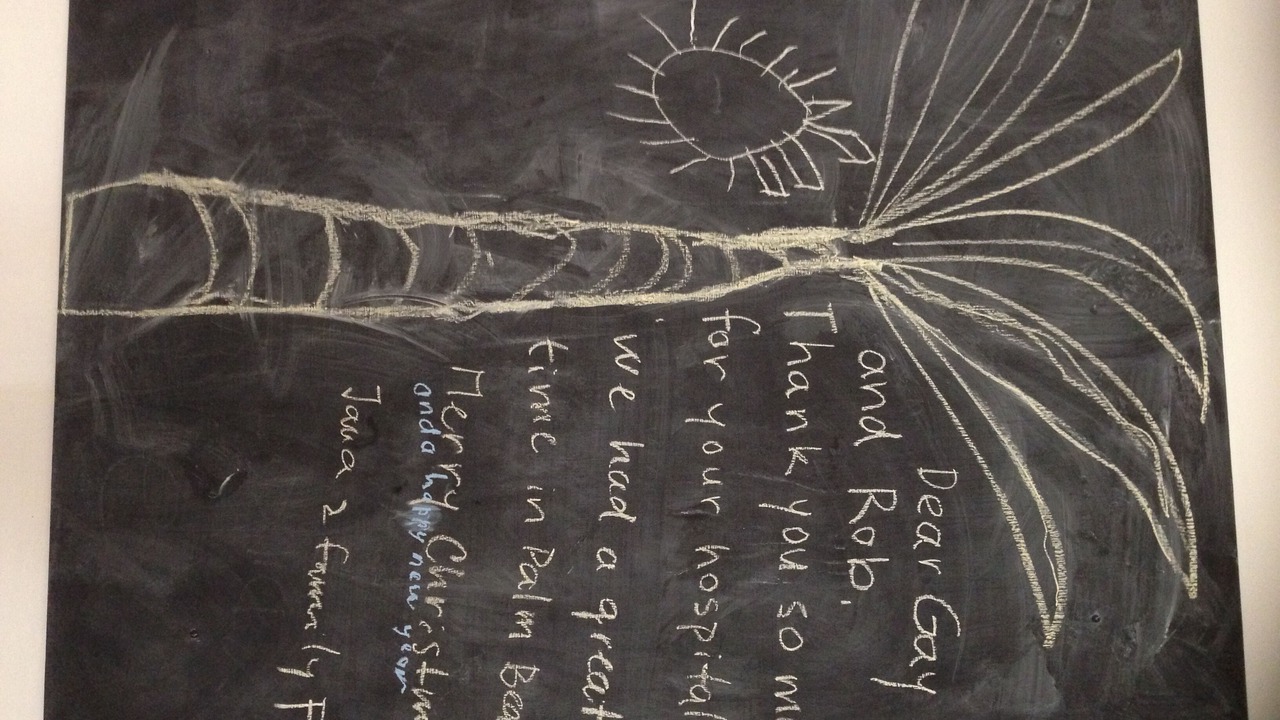 Dear Gay
and Rob,
Thank you so m
for your hospital
we had a great
time in Palm Bea
Merry Christm
and a happy new year
Jana & family F